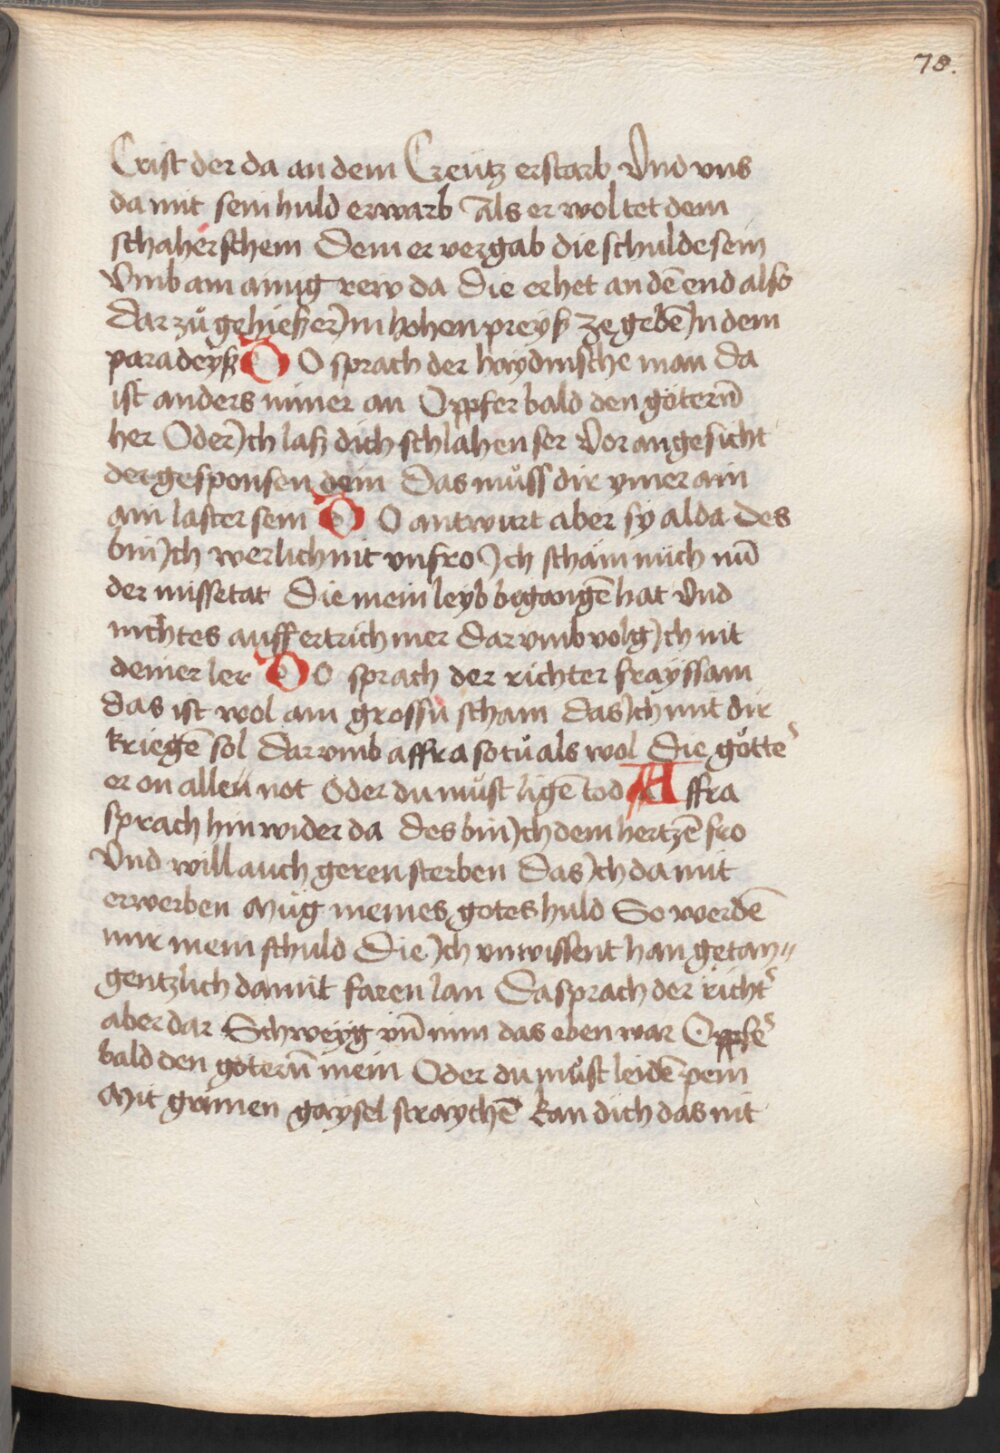 78.
Crist der da an dem Creütz erstarb Vnd vns
da mit sein huld erwarb Als er wol tet dem
schaher schem Dem er vergab die schulde sein
Vmb ain ainig rew da Die er het an dē end also
Dar zů gehieß er Jm hohen preyß ze gebē Jn dem
paradeyß DO sprach der haydnische man da
ist anders nimer an Opfer bald den göterñ
her Oder Jch laß dich schlahen ser Vor angesicht
der gesponsen dein Das můss dir ymer ain
ain laster sein DO antwurt aber sy alda des
bin Jch werlich nit vnfro Jch schäm mich nũ
der missetat Die mein leyb begangē hat Vnd
nichtes auff ertrich mer Dar vmb volg Jch nit
deiner ler DO sprach der richter frayssam
das ist wol ain grossū scham das Jch mit dir
kriegē sol Dar vmb affra so tů als wol Die götte
er on alleu not Oder du můst ligē tod Affra
sprach hin wider da Des bin Jch dem hertzē fro
Vnd will auch geren sterben Das Jch da mit
erwerben Müg meines gotes huld So werdē
mir mein schuld Die Jch vnwissent han getan
gentzlich da mit faren lan Da sprach der richt
aber dar Schweyg vñ nim das eben war Opffe
bald den goterñ mein Oder du můst leidē pein
Mit grimen gaysel straychē kan dich das nit